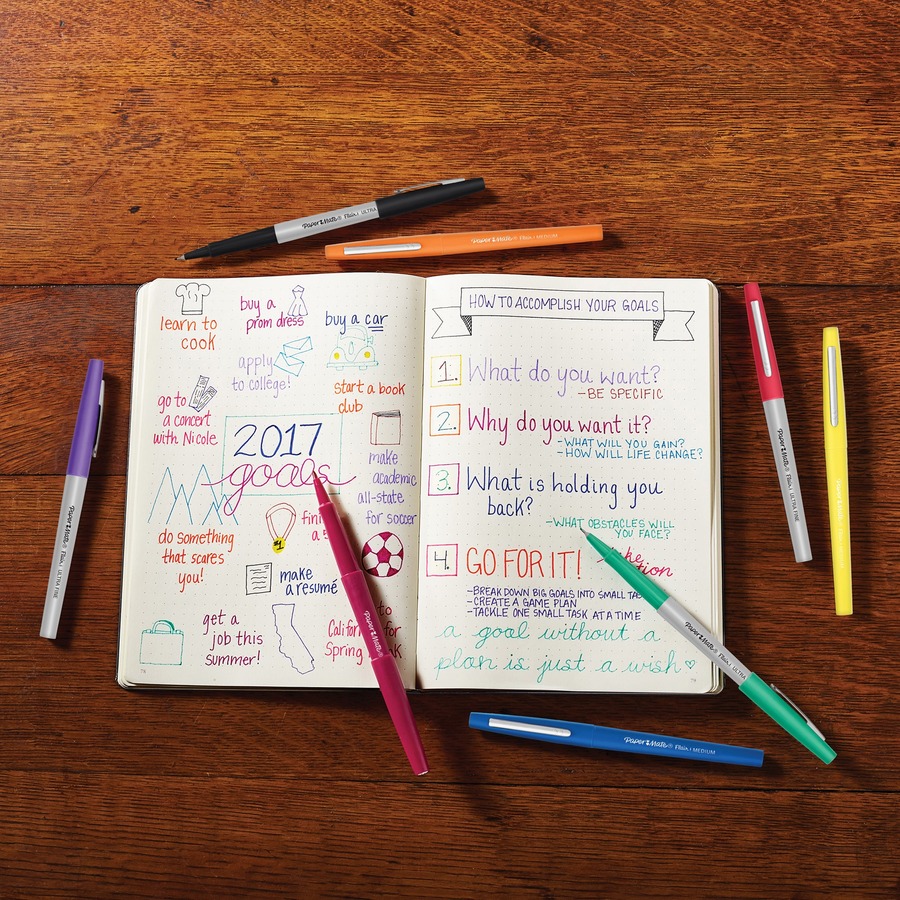 Paper Mate® Flair. ULTRA
Paper Mate® Flair. MEDIUM
learn to
cook
buy a
prom dress
buy a car
apply
to college!
start a book
club
go to
a concert
with Nicole
2017
goals
make
academic
all-state
for soccer
do something
that scares
you!
#1
make
a resumé
get a
job this
summer!
to
for
Spring
HOW TO ACCOMPLISH YOUR GOALS
1. What do you want?
-BE SPECIFIC
2. Why do you want it?
-WHAT WILL YOU GAIN?
-HOW WILL LIFE CHANGE?
3. What is holding you
back?
-WHAT OBSTACLES WILL
YOU FACE?
4. GO FOR IT!
-BREAK DOWN BIG GOALS INTO SMALL
-CREATE A GAME PLAN
-TACKLE ONE SMALL TASK AT A TIME
a goal without a
plan is just a wish
Paper Mate® Flair. ULTRA FINE
Paper Mate®
Paper Mate® Flair. ULTRA
Paper Mate® Flair. ULTRA FINE
Paper Mate® Flair. MEDIUM